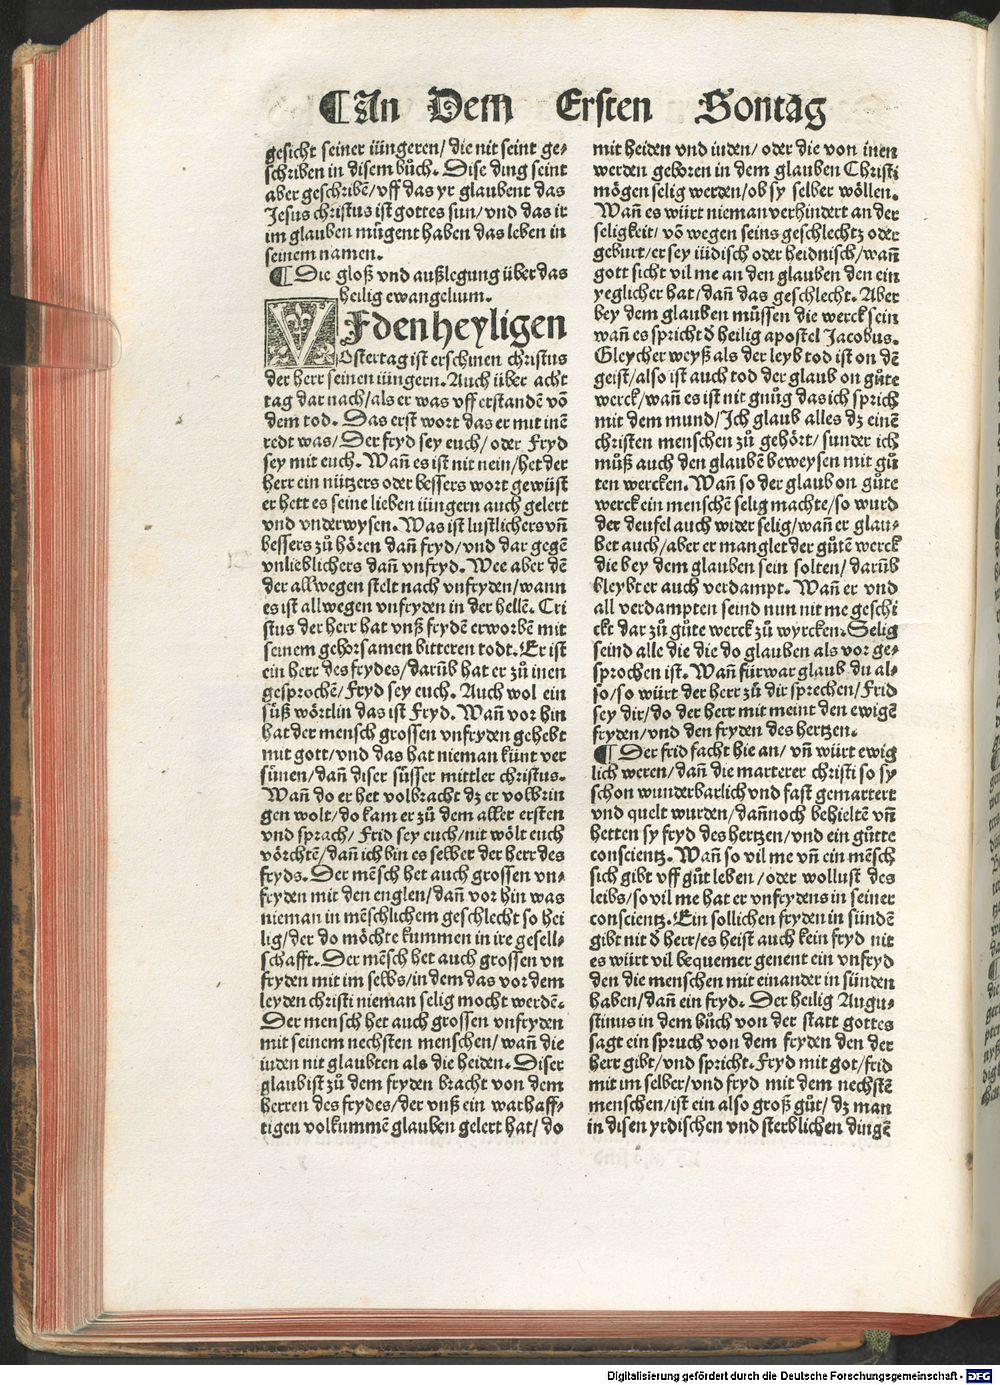 ¶An Dem Ersten Sontag
gesicht seiner iüngeren/ die nit seint ge⸗
schriben in disem bůch. Dise ding seint
aber geschribē/vff das yr glaubent das
Jesus christus ist gottes sun/vnd das ir
im glauben mügent haben das leben in
seinem namen.
¶ Die gloß vnd außlegung über das
heilig ewangelium.
VFden heyligen
Ostertag ist erschinen christus
der herr seinen iüngern. Auch über acht
tag dar nach/als er was vff erstandē vō
dem tod. Das erst wort das er mit inē
redt was/Der fryd sey euch/ oder Fryd
sey mit euch. Wañ es ist nit nein/het der
herr ein nützers oder bessers wort gewüst
er hett es seine lieben iüngern auch gelert
vnd vnderwysen. Was ist lustlichers vñ
bessers zů hören dañ fryd/vnd dar gegē
vnlieblichers dañ vnfryd. Wee aber dē
der allwegen stelt nach vnfryden/wann
es ist allwegen vnfryden in der hellē. Cri
stus der herr hat vnß frydē erworbē mit
seinem gehorsamen bitteren todt. Er ist
ein herr des frydes/darūb hat er zů inen
gesprochē/Fryd sey euch. Auch wol ein
süß wörtlin das ist Fryd. Wañ vor hin
hat der mensch grossen vnfryden gehebt
mit gott/vnd das hat nieman künt ver
sünen/dañ diser süsser mittler christus.
Wañ do er het volbracht dz er volbrin
gen wolt/do kam er zů dem aller ersten
vnd sprach/ Frid sey euch/nit wölt euch
vörchtē/dañ ich bin es selber der herr des
fryds. Der mēsch het auch grossen vn⸗
fryden mit den englen/dañ vor hin was
nieman in mēschlichem geschlecht so hei
lig/der do möchte kummen in ire gesell⸗
schafft. Der mēsch het auch grossen vn
fryden mit im selbs/in dem das vor dem
leyden christi nieman selig mocht werdē.
Der mensch het auch grossen vnfryden
mit seinem nechsten menschen/wañ die
iuden nit glaubten als die heiden. Diser
glaub ist zů dem fryden bracht von dem
herren des frydes/der vnß ein warhaff⸗
tigen volkummē glauben gelert hat/do
mit heiden vnd iuden/ oder die von inen
werden geboren in dem glauben Christi
mögen selig werden/ob sy selber wöllen.
Wañ es würt nieman verhindert an der
seligkeit/vō wegen seins geschlechtz oder
geburt/er sey iüdisch oder heidnisch/wañ
gott sicht vil me an den glauben den ein
yeglicher hat/dañ das geschlecht. Aber
bey dem glauben müssen die werck sein
wañ es spricht đ heilig apostel Jacobus.
Gleycher weyß als der leyb tod ist on dē
geist/also ist auch tod der glaub on gůte
werck/wañ es ist nit gnůg das ich sprich
mit dem mund/Ich glaub alles dz einē
christen menschen zů gehört/sunder ich
můß auch den glaubē beweysen mit gů
ten wercken. Wañ so der glaub on gůte
werck ein menschē selig machte/so wurd
der deufel auch wider selig/wañ er glau⸗
bet auch/aber er manglet der gůtē werck
die bey dem glauben sein solten/darūb
bleybt er auch verdampt. Wañ er vnd
all verdampten seind nun nit me geschi
ckt dar zů gůte werck zů wyrcken. Selig
seind alle die die do glauben als vor ge⸗
sprochen ist. Wañ fürwar glaub du al⸗
so/so würt der herr zů dir sprechen/Frid
sey dir/do der herr mit meint den ewigē
fryden/vnd den fryden des hertzen.
¶ Der frid facht hie an/ vñ würt ewig
lich weren/dañ die marterer christi so sy
schon wunderbarlich vnd fast gemartert
vnd quelt wurden/dannoch behieltē vñ
hetten sy fryd des hertzen/vnd ein gůtte
conscientz. Wañ so vil me vñ ein mēsch
sich gibt vff gůt leben/oder wollust des
leibs/so vil me hat er vnfrydens in seiner
conscientz. Ein sollichen fryden in sündē
gibt nit đ herr/es heist auch kein fryd nit
es würt vil bequemer genent ein vnfryd
den die menschen mit einander in sünden
haben/dañ ein fryd. Der heilig Augu⸗
stinus in dem bůch von der statt gottes
sagt ein spruch von dem fryden den der
herr gibt/vnd spricht. Fryd mit got/frid
mit im selber/vnd fryd mit dem nechstē
menschen/ist ein also groß gůt/ dz man
in disen yrdischen vnd sterblichen dingē
Digitalisierung gefördert durch die Deutsche Forschungsgemeinschaft - DFG